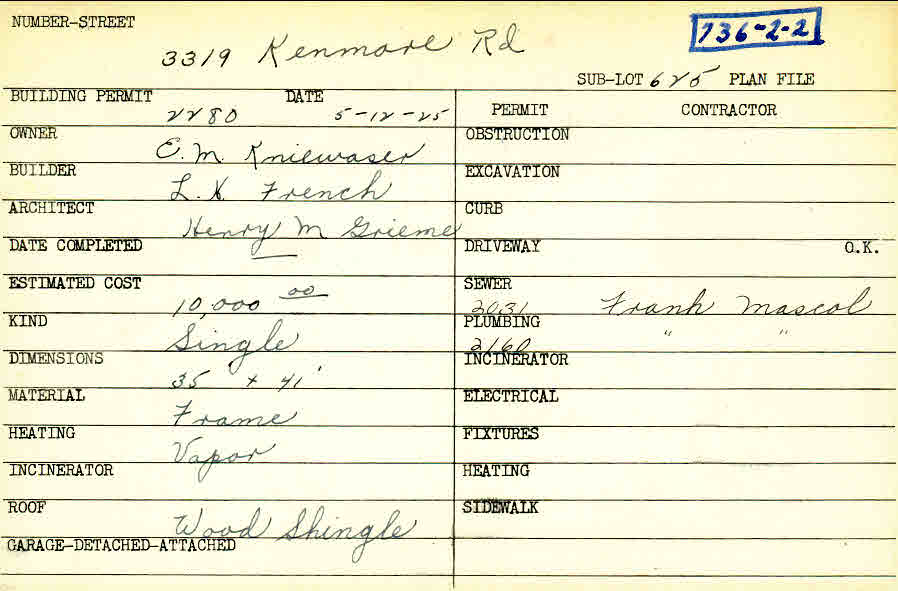 NUMBER-STREET
3319 Kenmore Rd
736-2-2
SUB-LOT 625 PLAN FILE
BUILDING PERMIT DATE
2280 5-12-25
PERMIT CONTRACTOR
OWNER
E. M. Kniewaser
BUILDER
L. H. French
ARCHITECT
Henry M Grieme
DATE COMPLETED
—
ESTIMATED COST
10,000 00
KIND
Single
DIMENSIONS
35 x 41'
MATERIAL
Frame
HEATING
Vapor
INCINERATOR
ROOF
Wood Shingle
GARAGE-DETACHED-ATTACHED
OBSTRUCTION
EXCAVATION
CURB
DRIVEWAY O.K.
SEWER
2031 Frank Mascol
PLUMBING
2160 " "
INCINERATOR
ELECTRICAL
FIXTURES
HEATING
SIDEWALK